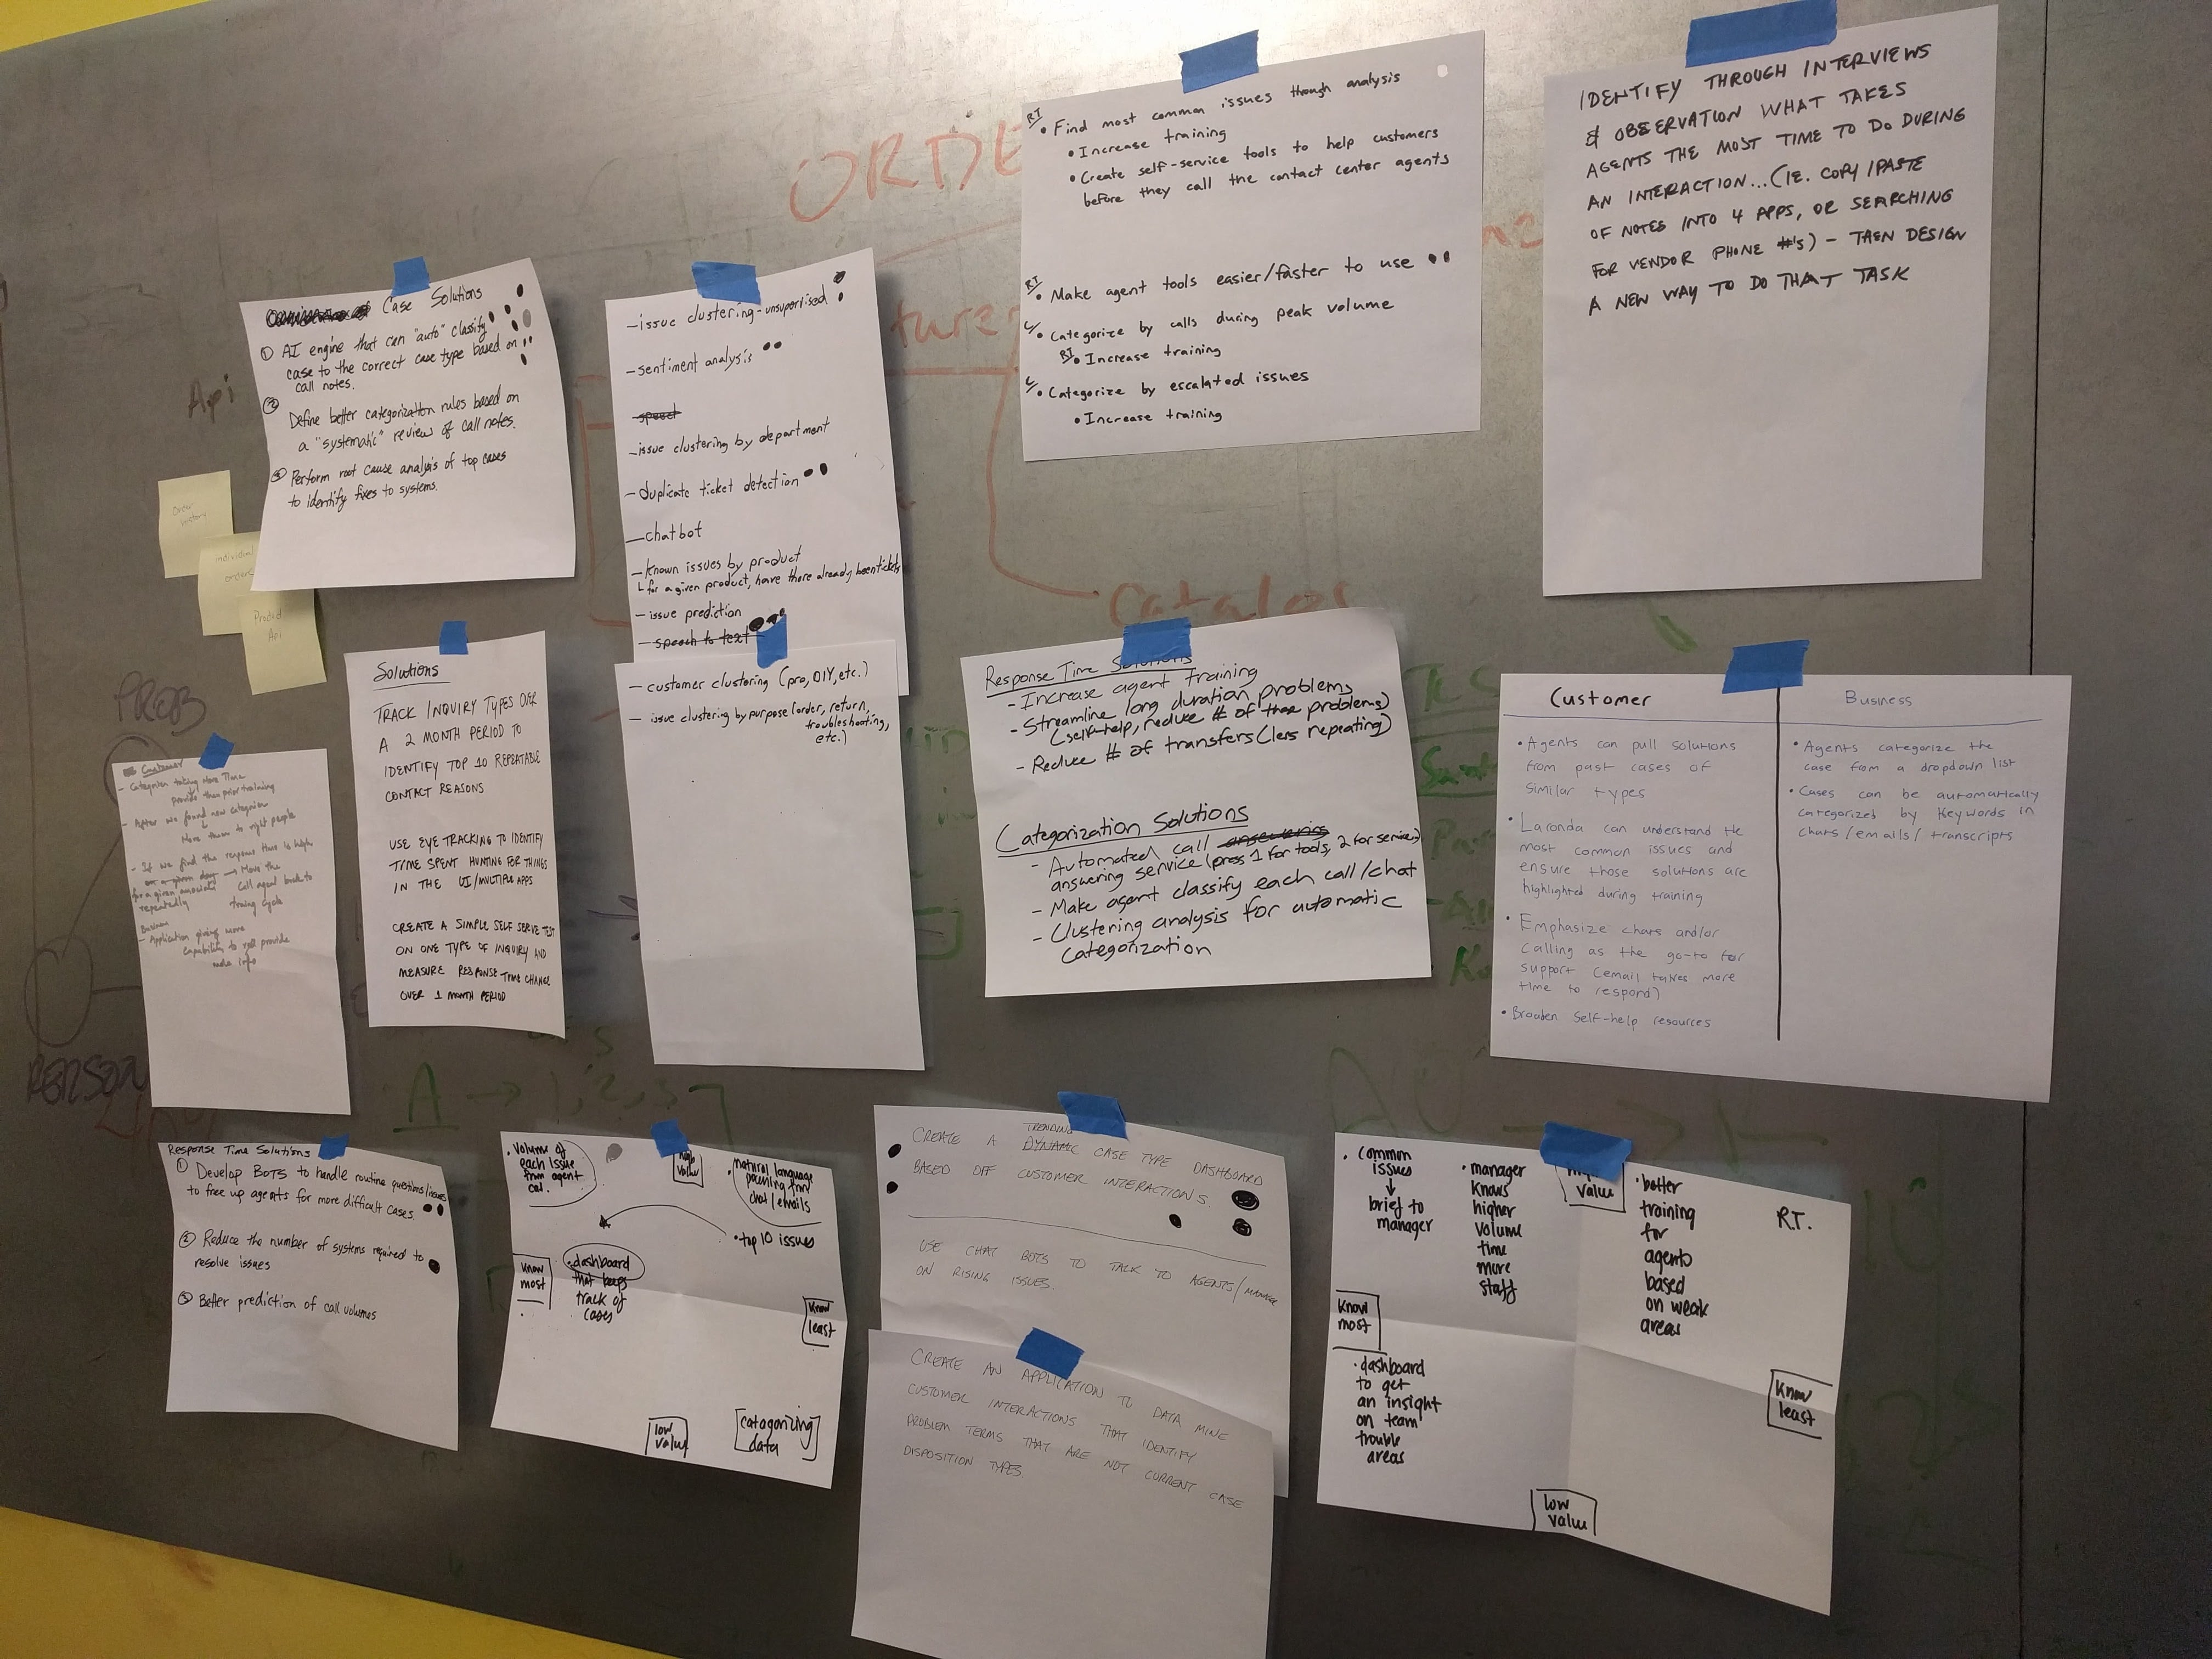 ORDE
Api
Case Solutions
① AI engine that can "auto" classify
case to the correct case type based on
call notes.
② Define better categorization rules based on
a "systematic" review of call notes.
③ Perform root cause analysis of top cases
to identify fixes to systems.
Order
History
individual
orders
Product
Api
- issue clustering - unsupervised
- sentiment analysis
speech
- issue clustering by department
- duplicate ticket detection
- chatbot
- known issues by product
└ for a given product, have there already been tickets
- issue prediction
- speech to text
- customer clustering (pro, DIY, etc.)
- issue clustering by purpose (order, return,
troubleshooting,
etc.)
RT
• Find most common issues through analysis
• Increase training
• Create self-service tools to help customers
before they call the contact center agents
RT
• Make agent tools easier/faster to use
C/
• Categorize by calls during peak volume
RT • Increase training
C/
• Categorize by escalated issues
• Increase training
IDENTIFY THROUGH INTERVIEWS
& OBSERVATION WHAT TAKES
AGENTS THE MOST TIME TO DO DURING
AN INTERACTION... (IE. COPY/PASTE
OF NOTES INTO 4 APPS, OR SEARCHING
FOR VENDOR PHONE #'S) - THEN DESIGN
A NEW WAY TO DO THAT TASK
ture
Catalog
PROB
Customer
- Categories taking More Time
provide them prior training
- After we found new categories
Move them to right people
- If we find the response time is high
on a given day → Move the
for a given associate call agent back to
repeatedly training cycle
Business
- Application giving more
capability to provide
more info
Solutions
TRACK INQUIRY TYPES OVER
A 2 MONTH PERIOD TO
IDENTIFY TOP 10 REPEATABLE
CONTACT REASONS
USE EYE TRACKING TO IDENTIFY
TIME SPENT HUNTING FOR THINGS
IN THE UI/MULTIPLE APPS
CREATE A SIMPLE SELF SERVE TEST
ON ONE TYPE OF INQUIRY AND
MEASURE RESPONSE TIME CHANGE
OVER 1 MONTH PERIOD
Response Time Solutions
- Increase agent training
- Streamline long duration problems
(self-help, reduce # of problems)
- Reduce # of transfers (less repeating)
Categorization Solutions
- Automated call answering
answering service (press 1 for tools, 2 for service)
- Make agent classify each call/chat
- Clustering analysis for automatic
categorization
Customer
• Agents can pull solutions
from past cases of
similar types
• Laronda can understand the
most common issues and
ensure those solutions are
highlighted during training
• Emphasize chats and/or
calling as the go-to for
support (email takes more
time to respond)
• Broaden self-help resources
Business
• Agents categorize the
case from a dropdown list
• Cases can be automatically
categorized by keywords in
chats/emails/transcripts
PERSON
A → 1, 2, 3
Response Time Solutions
① Develop BOTS to handle routine questions/issues
to free up agents for more difficult cases.
② Reduce the number of systems required to
resolve issues
③ Better prediction of call volumes
• Volume of
each issue
from agent
cat.
high
value
• natural language
parsing from
chat/emails
• top 10 issues
know
most
• dashboard
that keeps
track of
cases
know
least
low
value
catagorizing
data
TRENDING
CREATE A DYNAMIC CASE TYPE DASHBOARD
BASED OFF CUSTOMER INTERACTIONS.
USE CHAT BOTS TO TALK TO AGENTS/MANAGER
ON RISING ISSUES.
CREATE AN APPLICATION TO DATA MINE
CUSTOMER INTERACTIONS THAT IDENTIFY
PROBLEM TERMS THAT ARE NOT CURRENT CASE
DISPOSITION TYPES.
• common
issues
↓
brief to
manager
• manager
knows
higher
volume
time
more
staff
value
• better
training
for
agents
based
on weak
areas
R.T.
know
most
• dashboard
to get
an insight
on team
trouble
areas
know
least
low
value